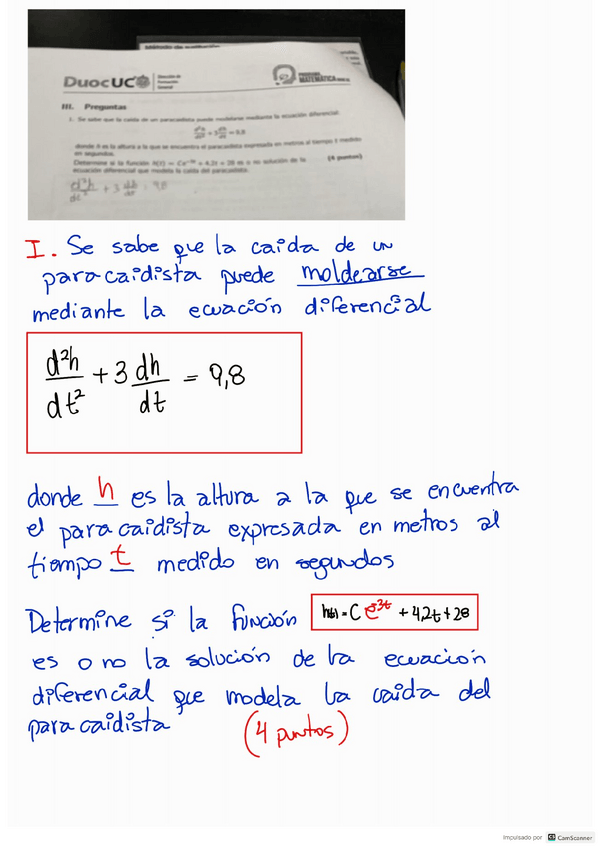 DuocUC
III. Preguntas
1. Se sabe que la caída de un paracaidista puede modelarse mediante la ecuación diferencial:
d²h/dt² + 3 dh/dt = 9,8
donde h es la altura a la que se encuentra el paracaidista expresada en metros al tiempo t medido
en segundos.
Determine si la función h(t) = + 4,2t + 28 es o no solución de la (4 puntos)
ecuación diferencial que modela la caída del paracaidista.
d²h/dt² + 3 dh/dt = 9,8
I. Se sabe que la caida de un
paracaidista puede moldearse
mediante la ecuación diferencial
d²h/dt² + 3 dh/dt = 9,8
donde h es la altura a la que se encuentra
el paracaidista expresada en metros al
tiempo t medido en segundos
Determine si la función h(t) = C e^-3t + 4,2t + 28
es o no la solución de la ecuación
diferencial que modela la caida del
paracaidista (4 puntos)
Impulsado por CS CamScanner